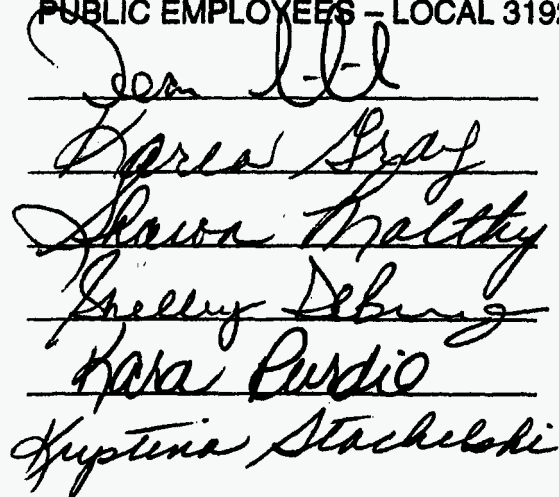 PUBLIC EMPLOYEES – LOCAL 3192
Karen Gray
Shawn Maltby
Shelley
Kara Purdie
Krystina Stachelski